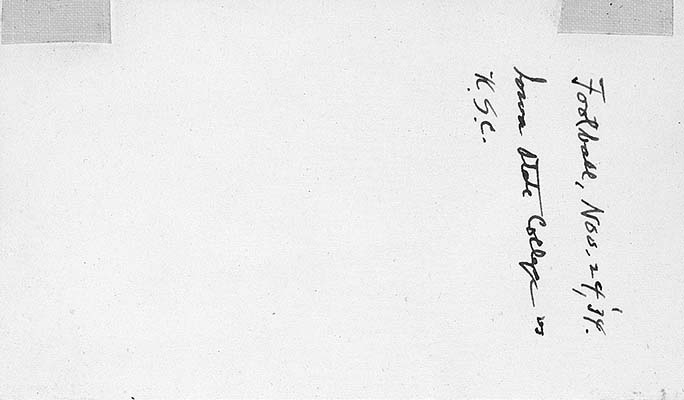 Football, Nov. 24, '34.
Iowa State College vs
K.S.C.